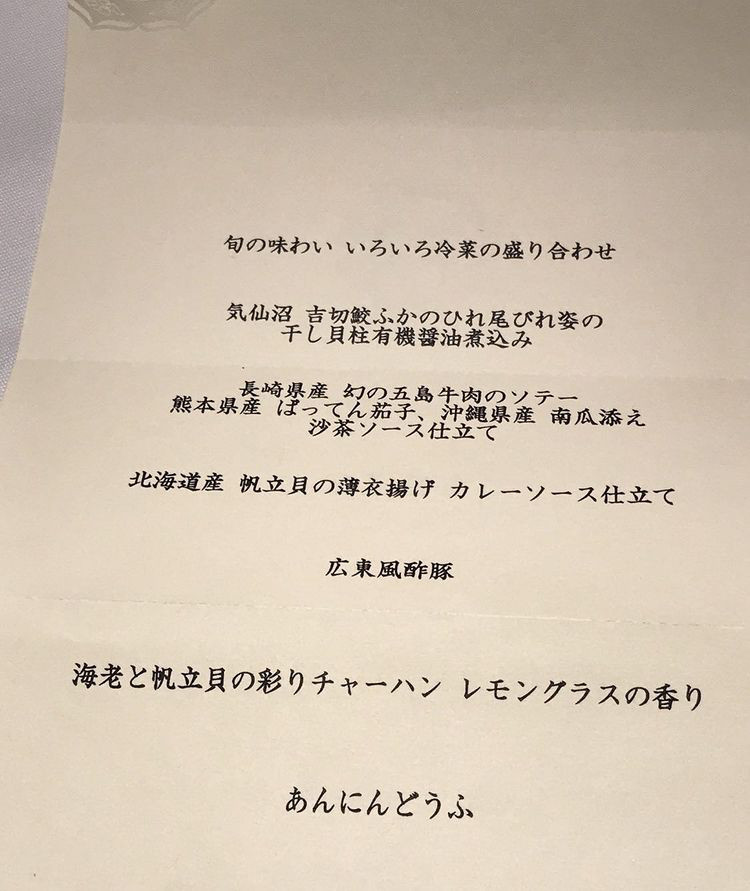 旬の味わい いろいろ冷菜の盛り合わせ
気仙沼 吉切鮫ふかのひれ尾びれ姿の
干し貝柱有機醤油煮込み
長崎県産 幻の五島牛肉のソテー
熊本県産 ばってん茄子、沖縄県産 南瓜添え
沙茶ソース仕立て
北海道産 帆立貝の薄衣揚げ カレーソース仕立て
広東風酢豚
海老と帆立貝の彩りチャーハン レモングラスの香り
あんにんどうふ